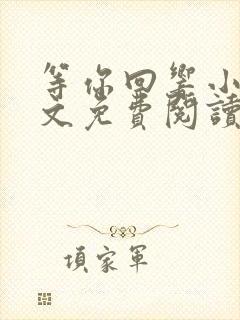 等你回響小
文免費閱讀
項家軍